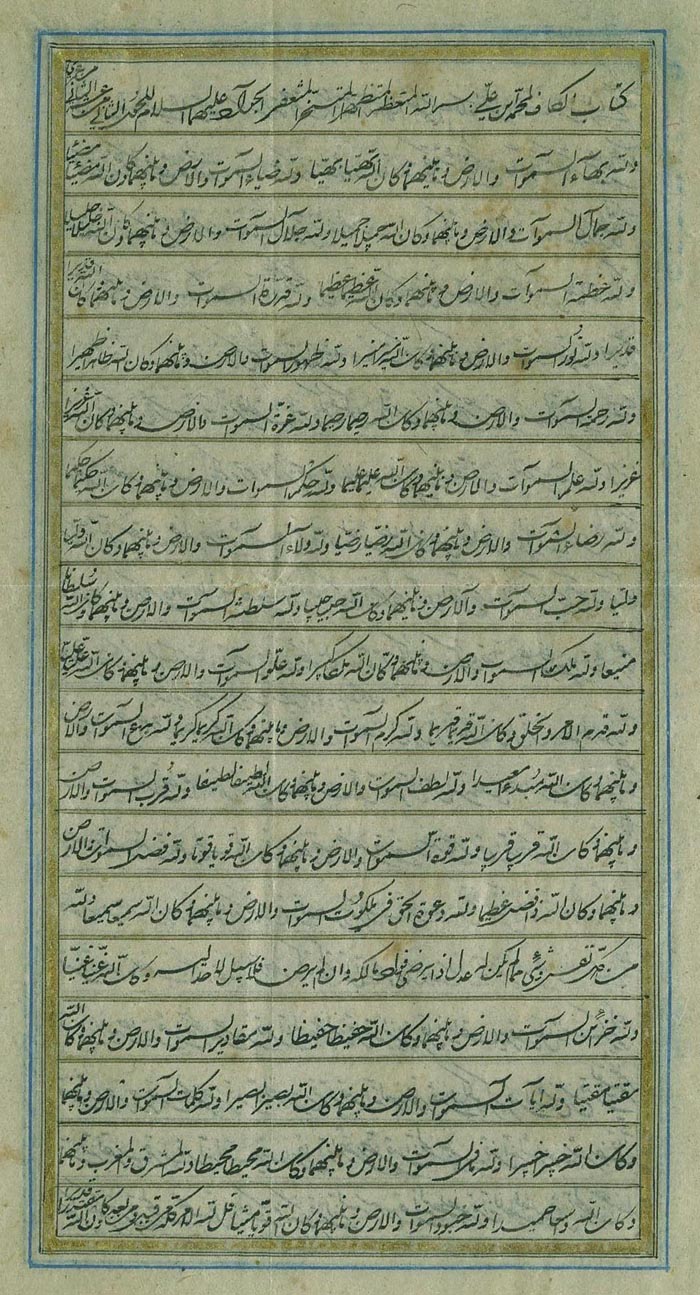 بسم الله
ولله بهاء السموات والارض وما بينهما وكان الله بهيا بهيا ولله ضياء السموات والارض وما بينهما وكان الله
ولله جمال السموات والارض وما بينهما وكان الله جميلا جميلا ولله جلال السموات والارض وما بينهما وكان الله جليلا جليلا
ولله عظمة السموات والارض وما بينهما وكان الله عظيما عظيما ولله قدرة السموات والارض وما بينهما وكان الله قديرا
قديرا ولله نور السموات والارض وما بينهما وكان الله نيرا نيرا ولله ظهور السموات والارض وما بينهما وكان الله ظاهرا ظهيرا
ولله رحمة السموات والارض وما بينهما وكان الله رحيما رحيما ولله عزة السموات والارض وما بينهما وكان الله عزيزا
عزيزا ولله علم السموات والارض وما بينهما وكان الله عليما عليما ولله حكم السموات والارض وما بينهما وكان الله حكيما حكيما
ولله رضاء السموات والارض وما بينهما وكان الله رضيا رضيا ولله ولاء السموات والارض وما بينهما وكان الله وليا
وليا ولله حب السموات والارض وما بينهما وكان الله حبيبا حبيبا ولله سلطنة السموات والارض وما بينهما وكان الله سلطانا
منيعا ولله ملك السموات والارض وما بينهما وكان الله ملكا كبيرا ولله علو السموات والارض وما بينهما وكان الله
ولله الامر والخلق وكان الله قديما قديما ولله كرم السموات والارض وما بينهما وكان الله كريما كريما ولله بدع السموات والارض
وما بينهما وكان الله مبدءا معيدا ولله لطف السموات والارض وما بينهما وكان الله لطيفا لطيفا ولله قرب السموات والارض
وما بينهما وكان الله قريبا قريبا ولله قوة السموات والارض وما بينهما وكان الله قويا قويا ولله فضل السموات والارض
وما بينهما وكان الله ذا فضل عظيما ولله دعوة الحق في ملكوت السموات والارض وما بينهما وكان الله سميعا سميعا ولله
من كل نفس وكان الله غنيا غنيا
ولله خزائن السموات والارض وما بينهما وكان الله حفيظا حفيظا ولله مقادير السموات والارض وما بينهما وكان الله
مقيتا مقيتا ولله ايات السموات والارض وما بينهما وكان الله بصيرا بصيرا ولله كلمات السموات والارض وما بينهما
وكان الله خبيرا خبيرا ولله ما في السموات والارض وما بينهما وكان الله محيطا محيطا ولله المشرق والمغرب وما بينهما
وكان الله واسعا حميدا ولله جنود السموات والارض وما بينهما وكان الله قويا